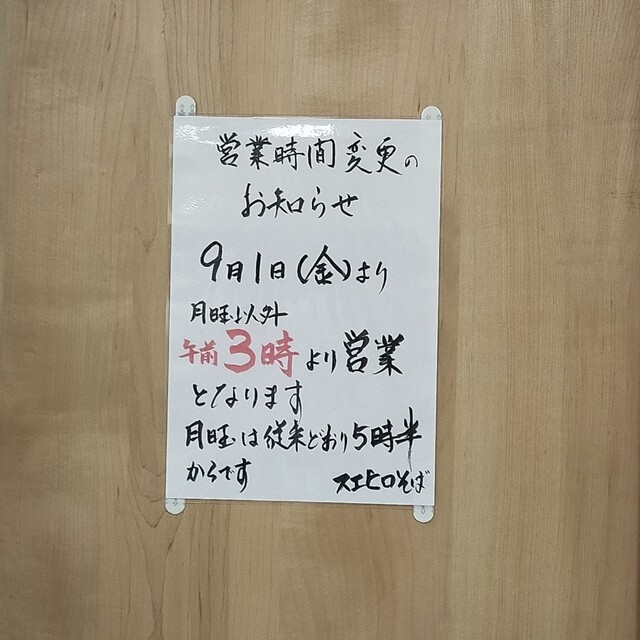 営業時間変更の
お知らせ
9月1日(金)より
月曜以外
午前3時より営業
となります
月曜は従来どおり5時半
からです
スエヒロそば